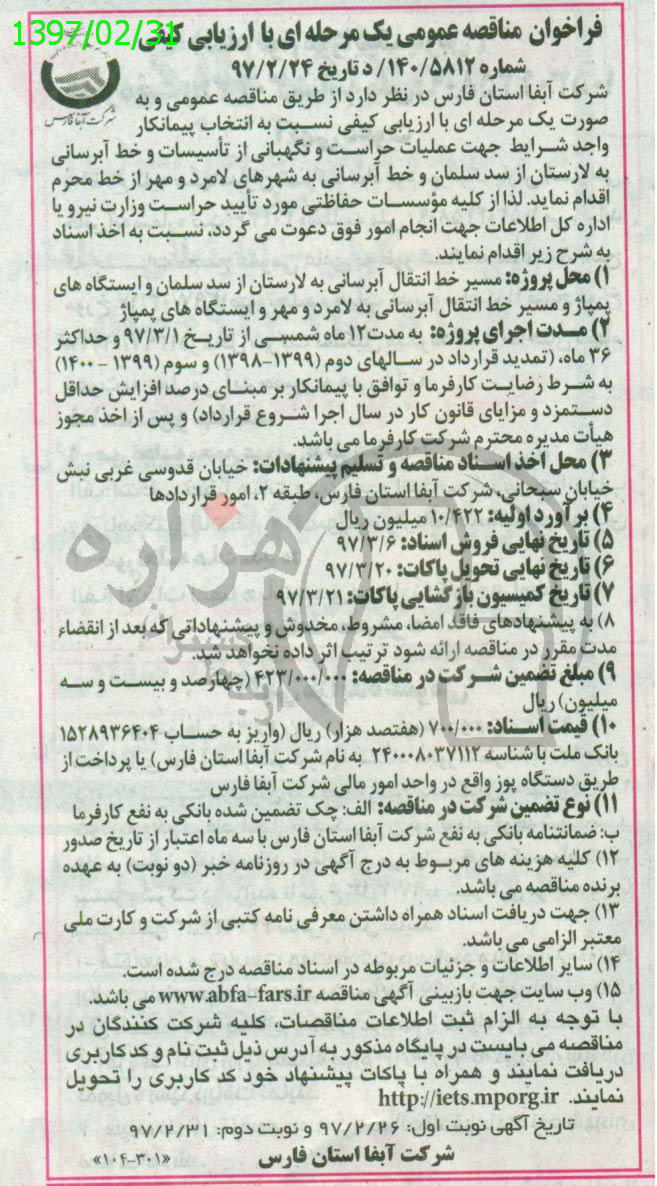 1397/02/31
فراخوان مناقصه عمومی یک مرحله ای با ارزیابی کیفی
شماره ۱۴۰/۵۸۱۲/ د تاریخ ۹۷/۲/۲۴
شرکت آبفا فارس
شرکت آبفا استان فارس در نظر دارد از طریق مناقصه عمومی و به
صورت یک مرحله ای با ارزیابی کیفی نسبت به انتخاب پیمانکار
واجد شرایط جهت عملیات حراست و نگهبانی از تأسیسات و خط آبرسانی
به لارستان از سد سلمان و خط آبرسانی به شهرهای لامرد و مهر از خط محرم
اقدام نماید. لذا از کلیه مؤسسات حفاظتی مورد تأیید حراست وزارت نیرو یا
اداره کل اطلاعات جهت انجام امور فوق دعوت می گردد، نسبت به اخذ اسناد
به شرح زیر اقدام نمایند.
۱) محل پروژه: مسیر خط انتقال آبرسانی به لارستان از سد سلمان و ایستگاه های
پمپاژ و مسیر خط انتقال آبرسانی به لامرد و مهر و ایستگاه های پمپاژ
۲) مدت اجرای پروژه: به مدت ۱۲ ماه شمسی از تاریخ ۹۷/۳/۱ و حداکثر
۳۶ ماه، (تمدید قرارداد در سالهای دوم (۱۳۹۹-۱۳۹۸) و سوم (۱۳۹۹ - ۱۴۰۰)
به شرط رضایت کارفرما و توافق با پیمانکار بر مبنای درصد افزایش حداقل
دستمزد و مزایای قانون کار در سال اجرا شروع قرارداد) و پس از اخذ مجوز
هیأت مدیره محترم شرکت کارفرما می باشد.
۳) محل اخذ اسناد مناقصه و تسلیم پیشنهادات: خیابان قدوسی غربی نبش
خیابان سبحانی، شرکت آبفا استان فارس، طبقه ۲، امور قراردادها
۴) برآورد اولیه: ۱۰/۴۲۲ میلیون ریال
۵) تاریخ نهایی فروش اسناد: ۹۷/۳/۶
۶) تاریخ نهایی تحویل پاکات: ۹۷/۳/۲۰
۷) تاریخ کمیسیون بازگشایی پاکات: ۹۷/۳/۲۱
۸) به پیشنهادهای فاقد امضا، مشروط، مخدوش و پیشنهاداتی که بعد از انقضاء
مدت مقرر در مناقصه ارائه شود ترتیب اثر داده نخواهد شد.
۹) مبلغ تضمین شرکت در مناقصه: ۴۲۳/۰۰۰/۰۰۰ (چهارصد و بیست و سه
میلیون) ریال
۱۰) قیمت اسناد: ۷۰۰/۰۰۰ (هفتصد هزار) ریال (واریز به حساب ۱۵۲۸۹۳۶۴۰۴
بانک ملت با شناسه ۲۴۰۰۰۸۰۳۷۱۱۲ به نام شرکت آبفا استان فارس) یا پرداخت از
طریق دستگاه پوز واقع در واحد امور مالی شرکت آبفا فارس
۱۱) نوع تضمین شرکت در مناقصه: الف: چک تضمین شده بانکی به نفع کارفرما
ب: ضمانتنامه بانکی به نفع شرکت آبفا استان فارس با سه ماه اعتبار از تاریخ صدور
۱۲) کلیه هزینه های مربوط به درج آگهی در روزنامه خبر (دو نوبت) به عهده
برنده مناقصه می باشد.
۱۳) جهت دریافت اسناد همراه داشتن معرفی نامه کتبی از شرکت و کارت ملی
معتبر الزامی می باشد.
۱۴) سایر اطلاعات و جزئیات مربوطه در اسناد مناقصه درج شده است.
۱۵) وب سایت جهت بازبینی آگهی مناقصه www.abfa-fars.ir می باشد.
با توجه به الزام ثبت اطلاعات مناقصات، کلیه شرکت کنندگان در
مناقصه می بایست در پایگاه مذکور به آدرس ذیل ثبت نام و کد کاربری
دریافت نمایند و همراه با پاکات پیشنهاد خود کد کاربری را تحویل
نمایند. http://iets.mporg.ir
تاریخ آگهی نوبت اول: ۹۷/۲/۲۶ و نوبت دوم: ۹۷/۲/۳۱
شرکت آبفا استان فارس
«۱۰۴-۳۰۱»
هزاره